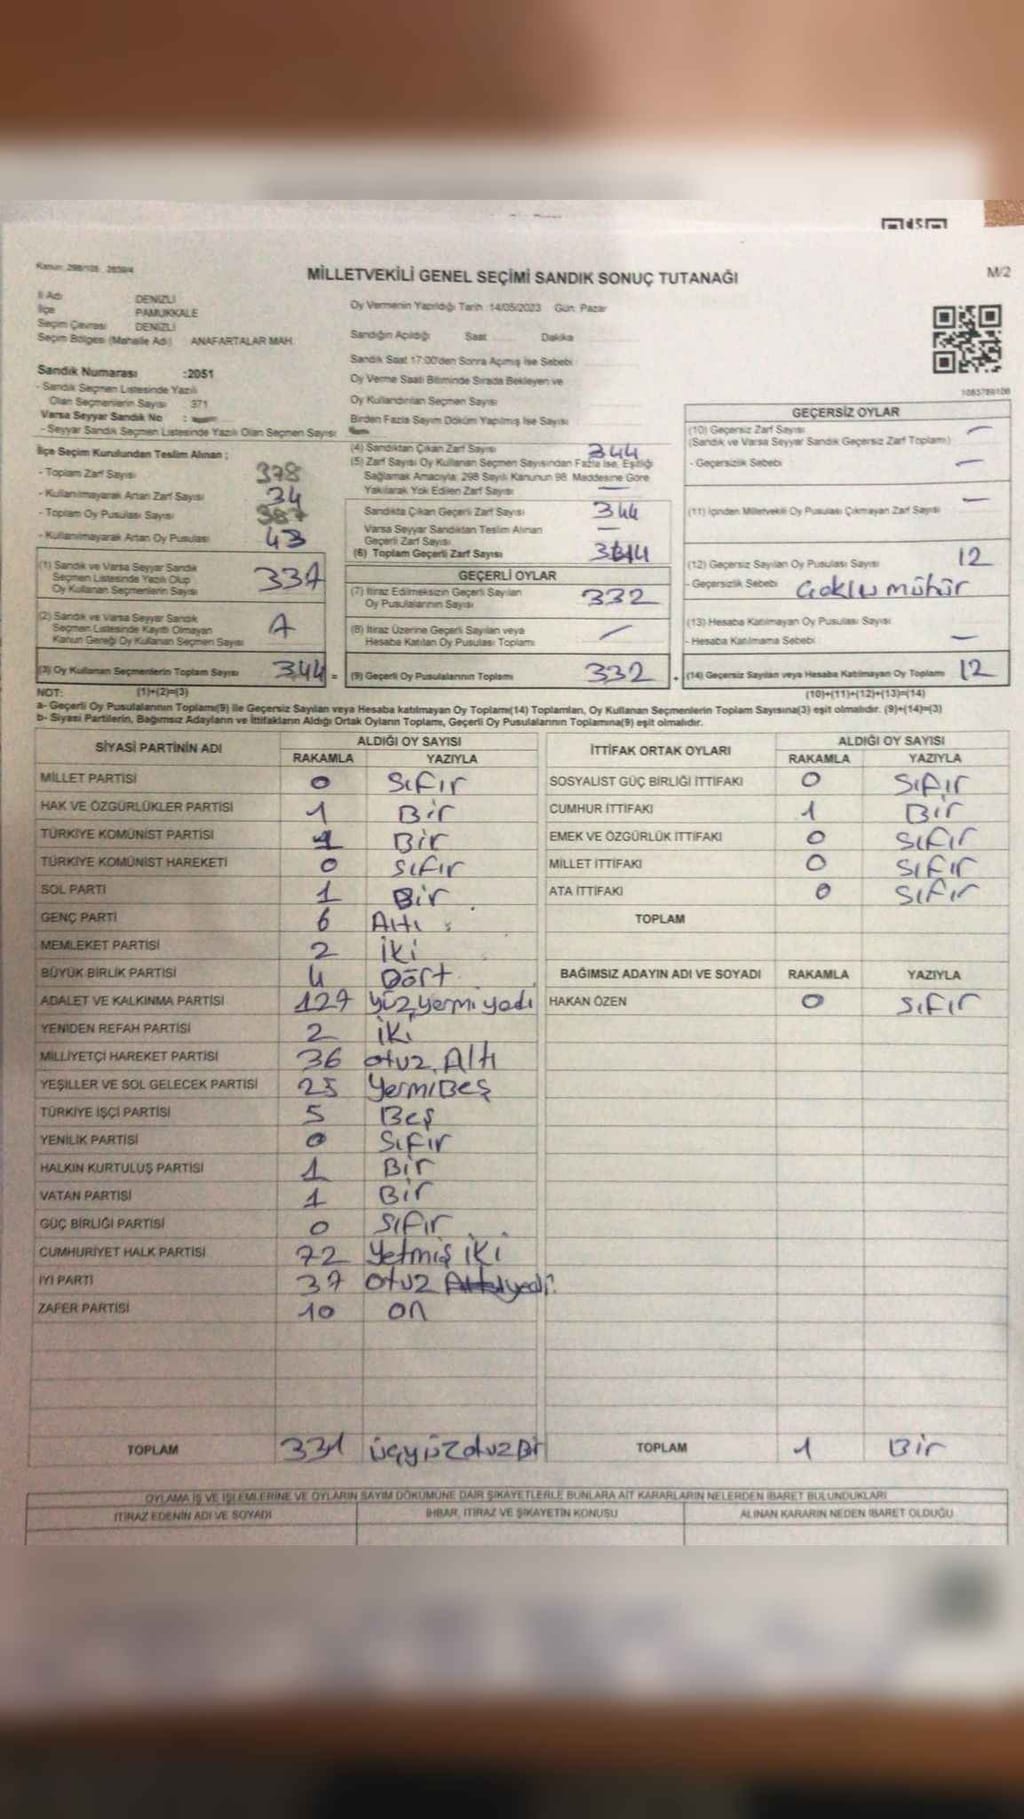 MİLLETVEKİLİ GENEL SEÇİMİ SANDIK SONUÇ TUTANAĞI
M/2
İl Adı : DENİZLİ
İlçe : PAMUKKALE
Seçim Çevresi : DENİZLİ
Seçim Bölgesi (Mahalle Adı) ANAFARTALAR MAH.
Oy Vermenin Yapıldığı Tarih :14/05/2023 Gün: Pazar
Sandığın Açıldığı Saat Dakika
Sandık Saat 17:00'den Sonra Açılmış İse Sebebi
Oy Verme Saati Bitiminde Sırada Bekleyen ve
Oy Kullandırılan Seçmen Sayısı
Birden Fazla Sayım Döküm Yapılmış İse Sayısı
Sandık Numarası :2051
- Sandık Seçmen Listesinde Yazılı
Olan Seçmenlerin Sayısı 371
Varsa Seyyar Sandık No :
- Seyyar Sandık Seçmen Listesinde Yazılı Olan Seçmen Sayısı
İlçe Seçim Kurulundan Teslim Alınan ;
- Toplam Zarf Sayısı 378
- Kullanılmayarak Artan Zarf Sayısı 34
- Toplam Oy Pusulası Sayısı 387
- Kullanılmayarak Artan Oy Pusulası 43
(1) Sandık ve Varsa Seyyar Sandık
Seçmen Listesinde Yazılı Olup
Oy Kullanan Seçmenlerin Sayısı 337
(2) Sandık ve Varsa Seyyar Sandık
Seçmen Listesinde Kayıtlı Olmayan
Kanun Gereği Oy Kullanan Seçmen Sayısı 7
(3) Oy Kullanan Seçmenlerin Toplam Sayısı 344 =
(4) Sandıktan Çıkan Zarf Sayısı 344
(5) Zarf Sayısı Oy Kullanan Seçmen Sayısından Fazla İse, Eşitliği
Sağlamak Amacıyla; 298 Sayılı Kanunun 98. Maddesine Göre
Yakılarak Yok Edilen Zarf Sayısı —
Sandıkta Çıkan Geçerli Zarf Sayısı 344
Varsa Seyyar Sandıktan Teslim Alınan
Geçerli Zarf Sayısı —
(6) Toplam Geçerli Zarf Sayısı 344
GEÇERLİ OYLAR
(7) İtiraz Edilmeksizin Geçerli Sayılan
Oy Pusulalarının Sayısı 332
(8) İtiraz Üzerine Geçerli Sayılan veya
Hesaba Katılan Oy Pusulası Toplamı —
(9) Geçerli Oy Pusulalarının Toplamı 332 +
1083789106
GEÇERSİZ OYLAR
(10) Geçersiz Zarf Sayısı —
(Sandık ve Varsa Seyyar Sandık Geçersiz Zarf Toplamı)
- Geçersizlik Sebebi —
(11) İçinden Milletvekili Oy Pusulası Çıkmayan Zarf Sayısı —
(12) Geçersiz Sayılan Oy Pusulası Sayısı 12
- Geçersizlik Sebebi Çoklu mühür
(13) Hesaba Katılmayan Oy Pusulası Sayısı
- Hesaba Katılmama Sebebi —
(14) Geçersiz Sayılan veya Hesaba Katılmayan Oy Toplamı 12
NOT: (1)+(2)=(3) (10)+(11)+(12)+(13)=(14)
a- Geçerli Oy Pusulalarının Toplamı(9) ile Geçersiz Sayılan veya Hesaba katılmayan Oy Toplam(14) Toplamları, Oy Kullanan Seçmenlerin Toplam Sayısına(3) eşit olmalıdır. (9)+(14)=(3)
b- Siyasi Partilerin, Bağımsız Adayların ve İttifakların Aldığı Ortak Oyların Toplamı, Geçerli Oy Pusulalarının Toplamına(9) eşit olmalıdır.
SİYASİ PARTİNİN ADI ALDIĞI OY SAYISI
RAKAMLA YAZIYLA
MİLLET PARTİSİ 0 Sıfır
HAK VE ÖZGÜRLÜKLER PARTİSİ 1 Bir
TÜRKİYE KOMÜNİST PARTİSİ 1 Bir
TÜRKİYE KOMÜNİST HAREKETİ 0 Sıfır
SOL PARTİ 1 Bir
GENÇ PARTİ 6 Altı
MEMLEKET PARTİSİ 2 İki
BÜYÜK BİRLİK PARTİSİ 4 Dört
ADALET VE KALKINMA PARTİSİ 127 Yüz yermi yedi
YENİDEN REFAH PARTİSİ 2 İki
MİLLİYETÇİ HAREKET PARTİSİ 36 otuz Altı
YEŞİLLER VE SOL GELECEK PARTİSİ 25 YermiBeş
TÜRKİYE İŞÇİ PARTİSİ 5 Beş
YENİLİK PARTİSİ 0 Sıfır
HALKIN KURTULUŞ PARTİSİ 1 Bir
VATAN PARTİSİ 1 Bir
GÜÇ BİRLİĞİ PARTİSİ 0 Sıfır
CUMHURİYET HALK PARTİSİ 72 Yetmiş İki
İYİ PARTİ 37 otuz yedi
ZAFER PARTİSİ 10 on
TOPLAM 331 üçyüz otuz Bir
İTTİFAK ORTAK OYLARI ALDIĞI OY SAYISI
RAKAMLA YAZIYLA
SOSYALİST GÜÇ BİRLİĞİ İTTİFAKI 0 Sıfır
CUMHUR İTTİFAKI 1 Bir
EMEK VE ÖZGÜRLÜK İTTİFAKI 0 Sıfır
MİLLET İTTİFAKI 0 Sıfır
ATA İTTİFAKI 0 Sıfır
TOPLAM
BAĞIMSIZ ADAYIN ADI VE SOYADI RAKAMLA YAZIYLA
HAKAN ÖZEN 0 Sıfır
TOPLAM 1 Bir
OYLAMA İŞ VE İŞLEMLERİNE VE OYLARIN SAYIM DÖKÜMÜNE DAİR ŞİKAYETLERLE BUNLARA AİT KARARLARIN NELERDEN İBARET BULUNDUKLARI
İTİRAZ EDENİN ADI VE SOYADI İHBAR, İTİRAZ VE ŞİKAYETİN KONUSU ALINAN KARARIN NEDEN İBARET OLDUĞU